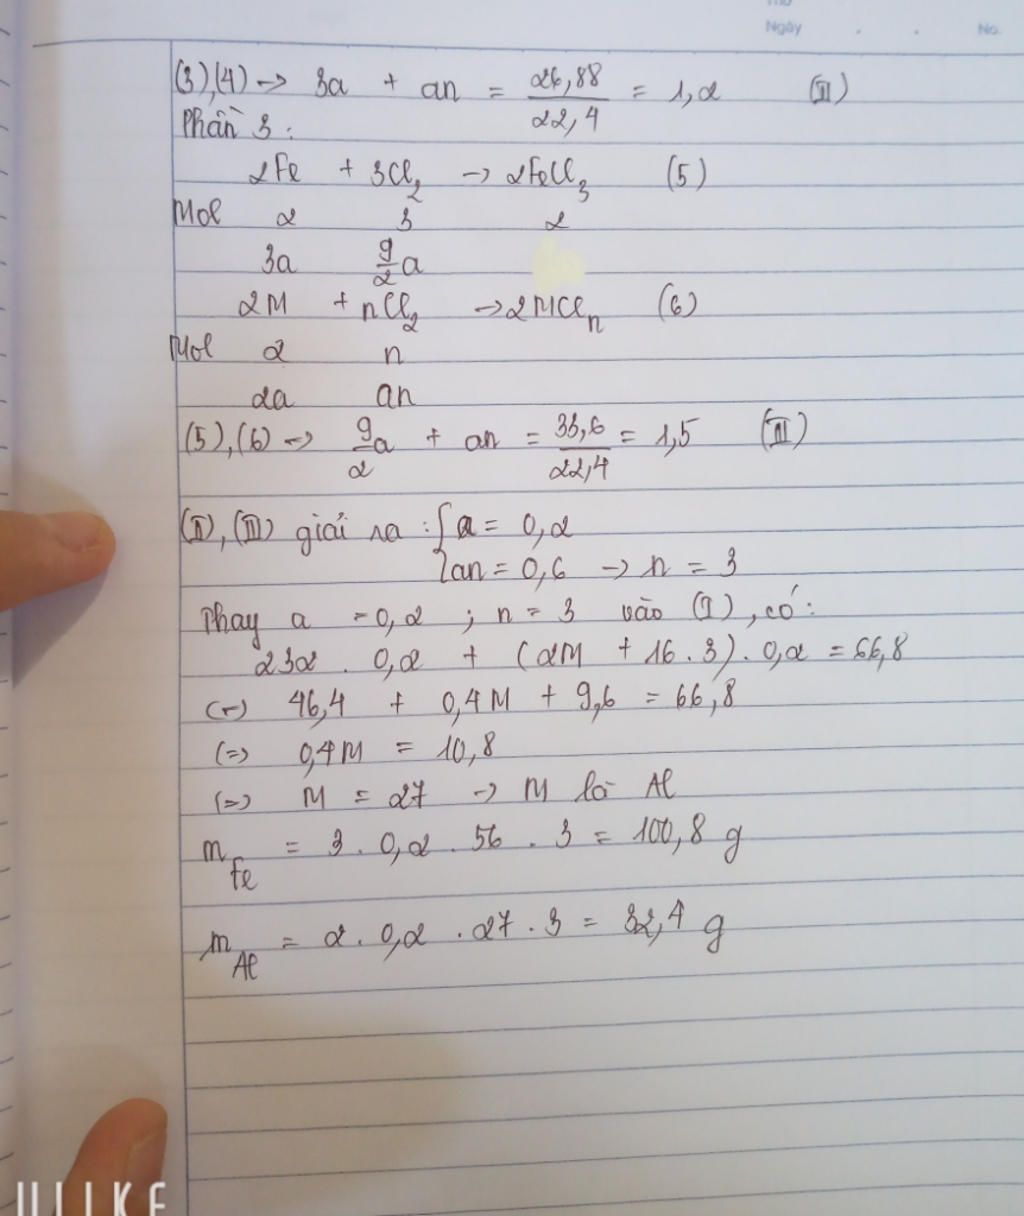 Thứ
Ngày . . No.
(3),(4) → 3a + an = 26,88/22,4 = 1,2 (II)
Phần 3 :
2Fe + 3Cl₂ → 2FeCl₃ (5)
Mol 2 3 2
3a 9/2 a
2M + nCl₂ → 2MCln (6)
Mol 2 n
2a an
(5),(6) → 9/2 a + an = 33,6/22,4 = 1,5 (III)
(II), (III) giải ra : { a = 0,2
an = 0,6 → n = 3
Thay a = 0,2 ; n = 3 vào (I), có :
232 . 0,2 + (2M + 16 . 3) . 0,2 = 66,8
(=) 46,4 + 0,4M + 9,6 = 66,8
(=) 0,4M = 10,8
(=) M = 27 → M là Al
mFe = 3 . 0,2 . 56 . 3 = 100,8 g
mAl = 2 . 0,2 . 27 . 3 = 32,4 g
ULIKE